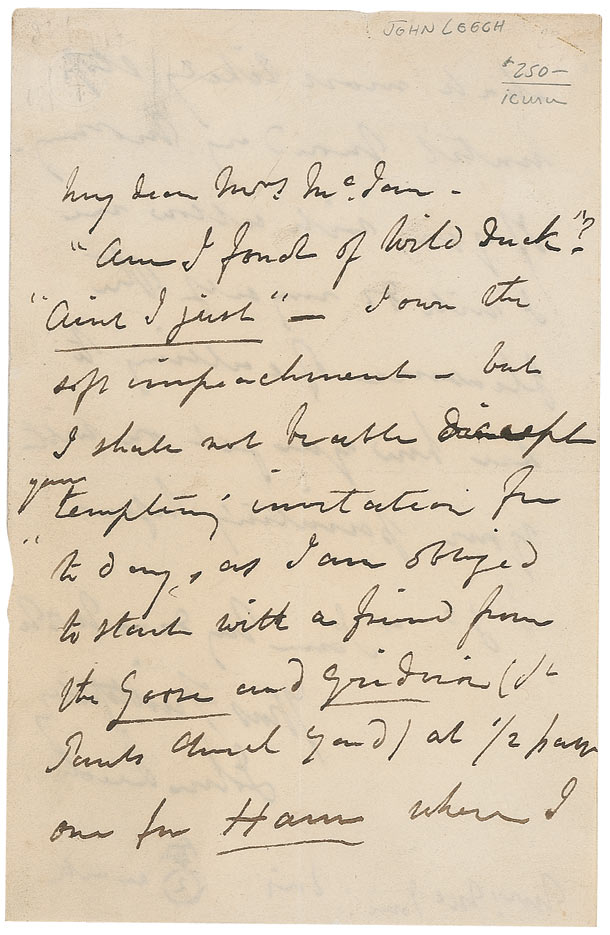 JOHN LEECH
$250-
My dear Mrs McIan -
"Am I fond of Wild Duck"?
"Aint I just" — I own the
soft impeachment - but
I shall not be able accept
your
tempting invitation for
to day, as I am obliged
to start with a friend from
the Goose and Gridiron (St
Pauls Church Yard) at 1/2 past
one for Ham where I